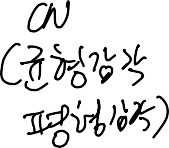 CN
(균형감각
평형감각)